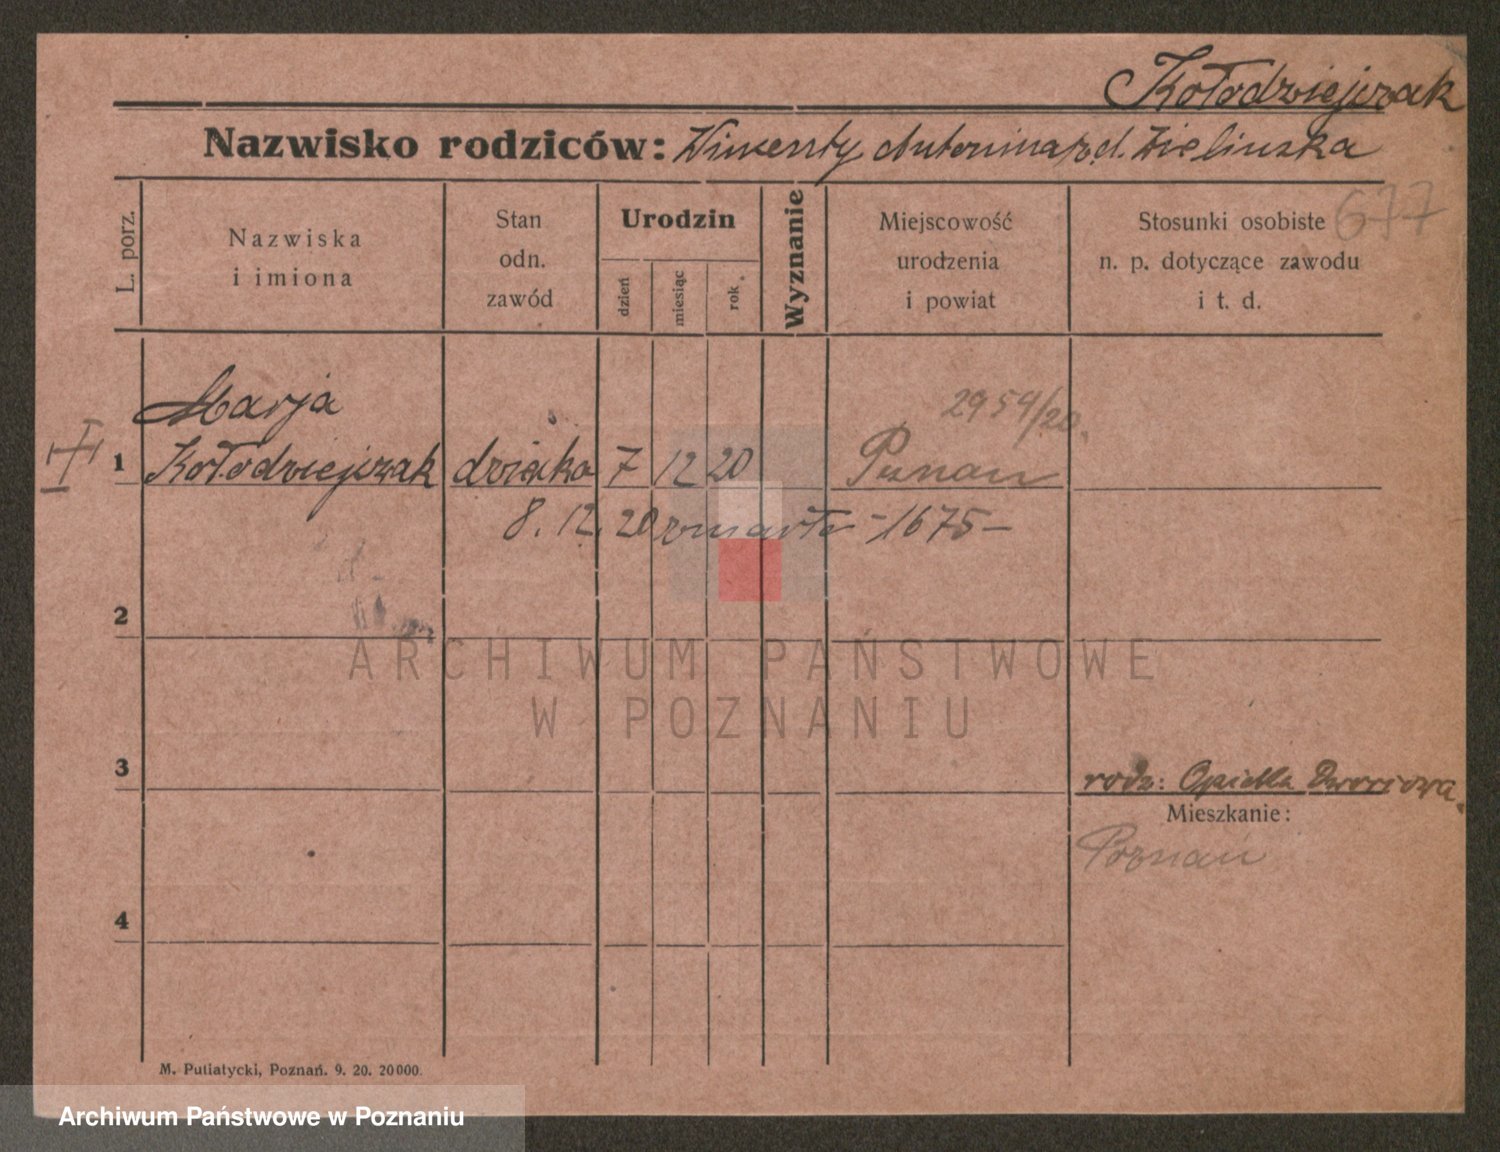 Kołodziejczak
Nazwisko rodziców: Wincenty Antonina z d. Zielinska
677
L. porz.
Nazwiska
i imiona
Stan
odn.
zawód
Urodzin
dzień
miesiąc
rok
Wyznanie
Miejscowość
urodzenia
i powiat
Stosunki osobiste
n. p. dotyczące zawodu
i t. d.
Marja
2954/20.
1 Kołodziejczak dziecko 7 12 20 Poznań
8. 12. 20 zmarła -1675-
2
ARCHIWUM PAŃSTWOWE
W POZNANIU
3
rodz: Opieka Dworcowa.
Mieszkanie:
Poznań
4
M. Putiatycki, Poznań. 9. 20. 20000.
Archiwum Państwowe w Poznaniu